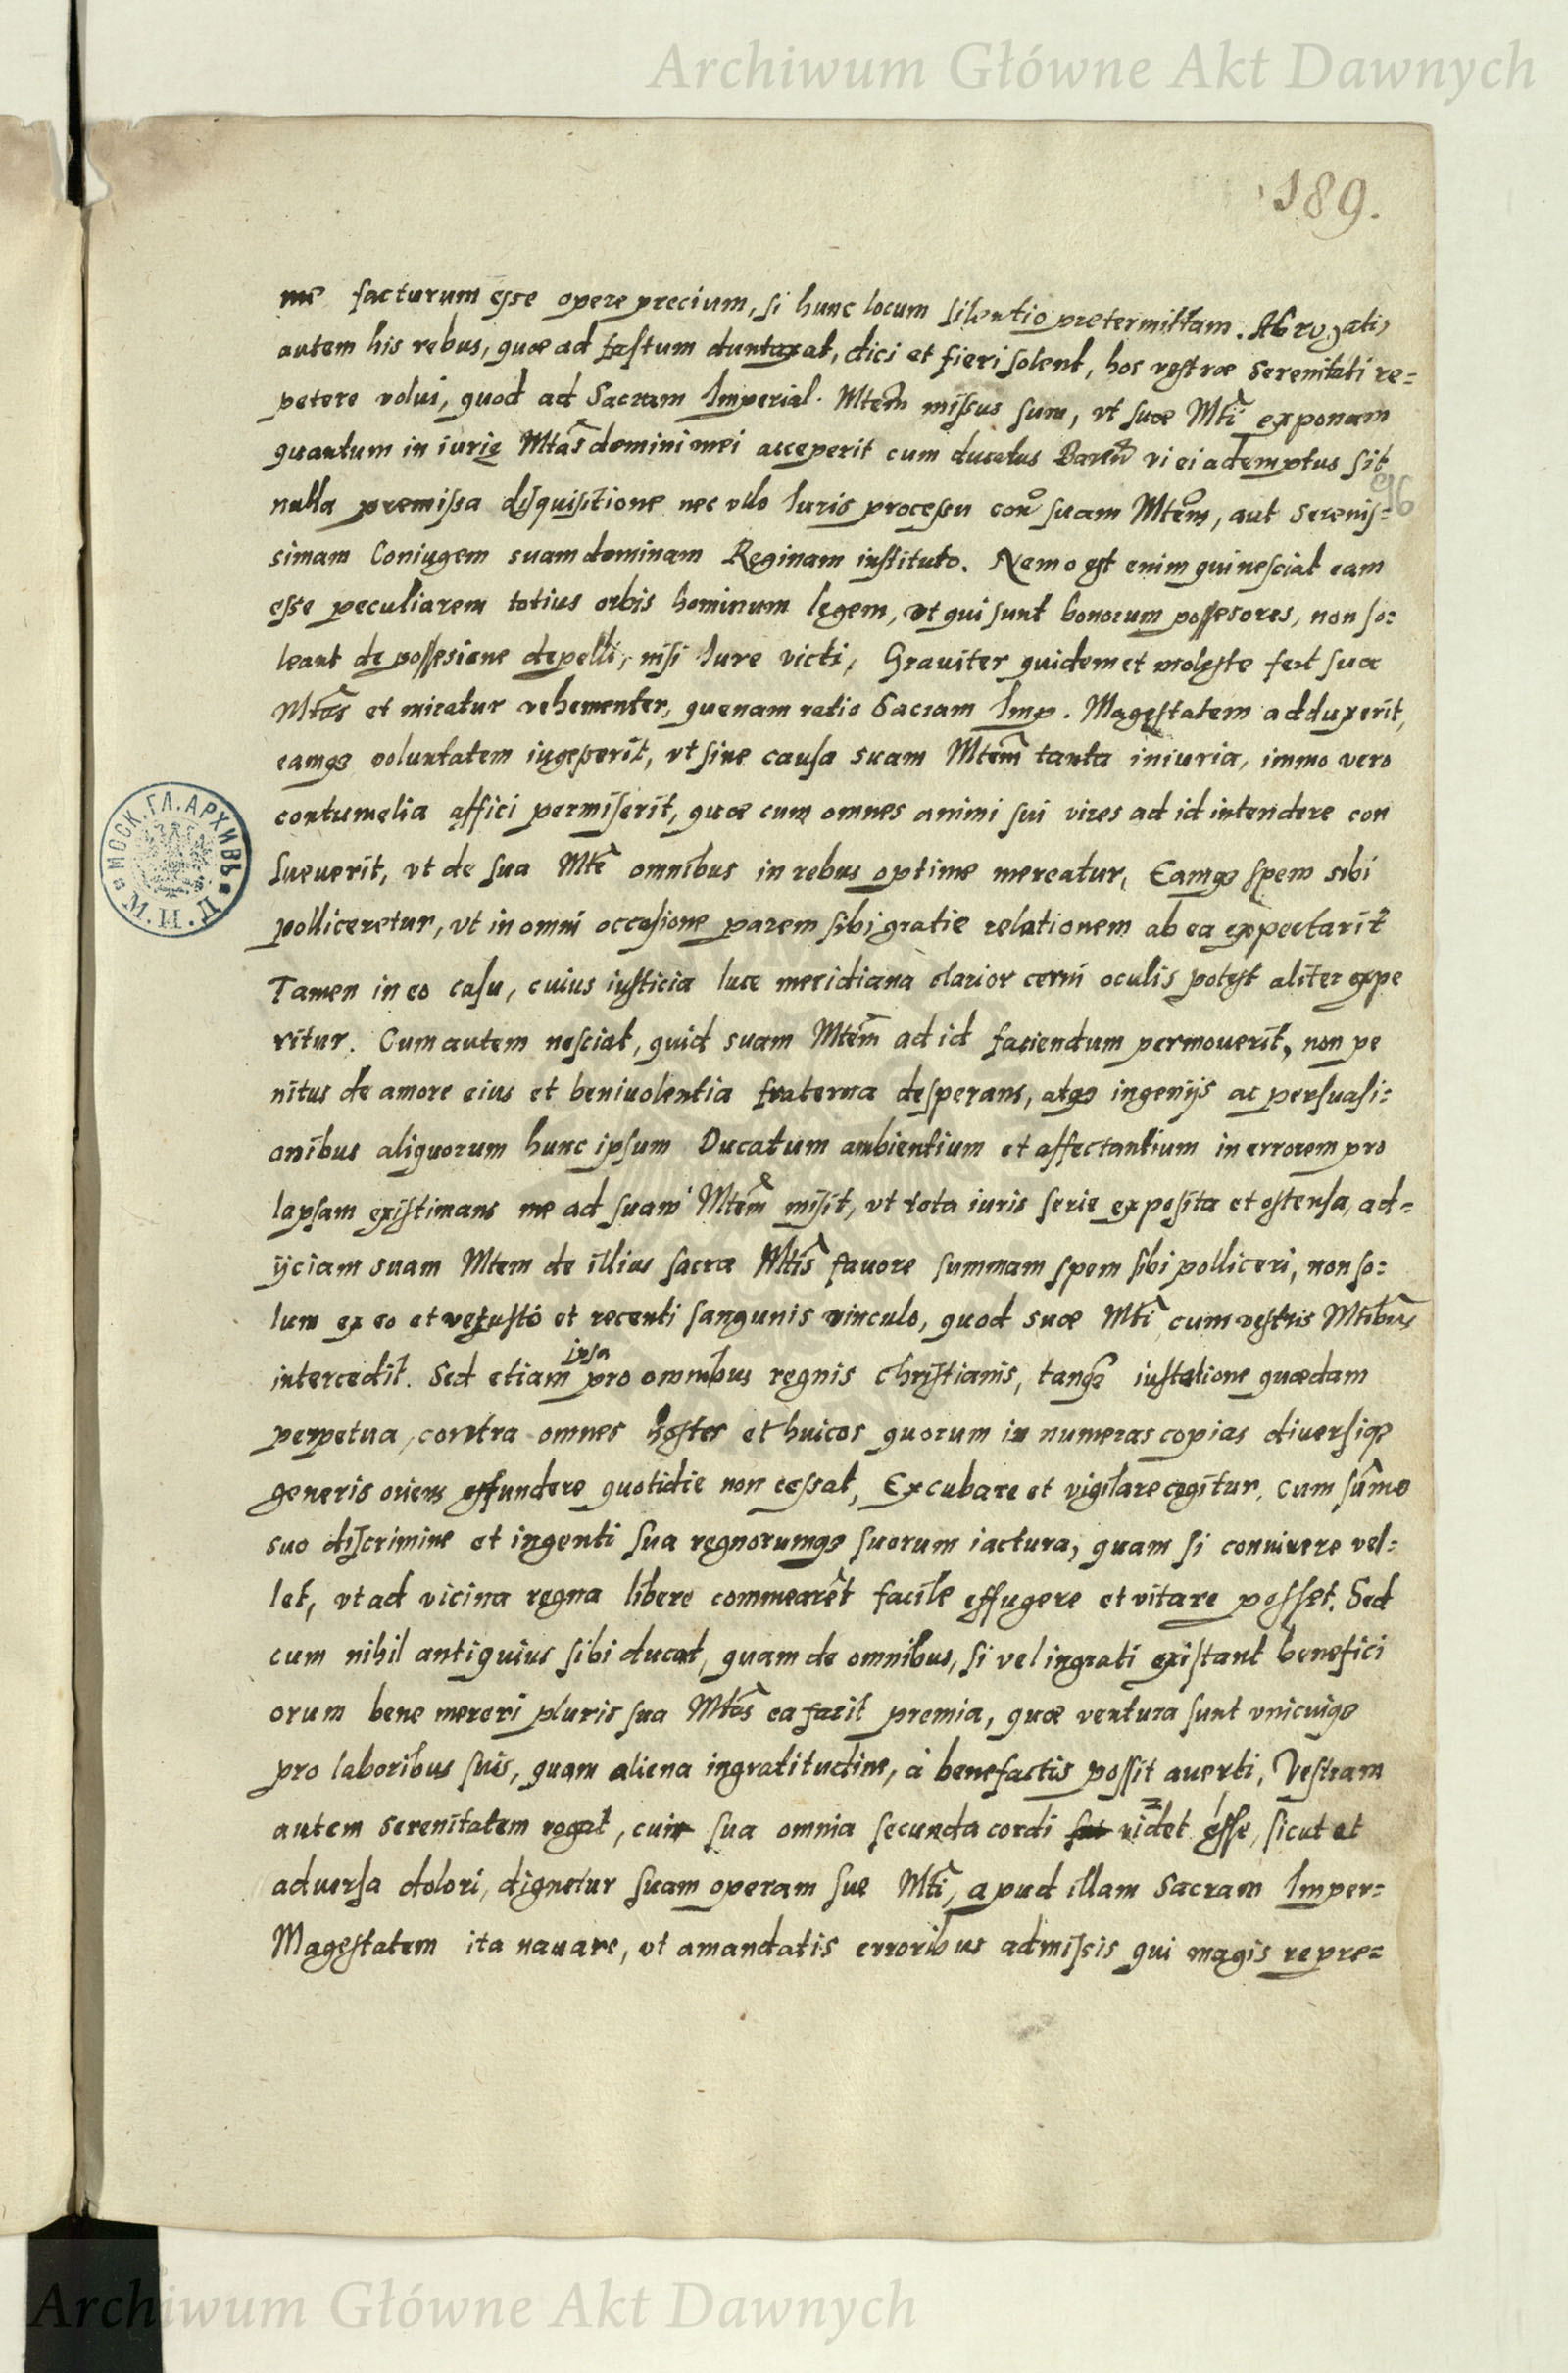 Archiwum Główne Akt Dawnych
189.
me facturum esse opere precium, si hunc locum silentio pretermittam. Abrogatis
autem his rebus, quæ ad fastum duntaxat, dici et fieri solent, hos vestræ Serenitati re=
petere volui, quod ad Sacram Imperial. Mtem missus sum, vt suæ Mti exponam
quantum in iurię Mtas domini mei acceperit cum ducatus Baren vi ei ademptus sit
96
nulla premissa disquisitione nec vllo Iuris processu con suam Mtem, aut Serenis=
simam Coniugem suam dominam Reginam instituto. Nemo est enim qui nesciat eam
esse peculiarem totius orbis hominum legem, vt qui sunt bonorum possesores, non so=
leant de possesione depelli, nisi Iure victi, Graviter quidem et moleste fert sua
Mtas et miratur vehementer, quenam ratio Sacram Imp. Magestatem adduxerit,
eamqz voluntatem iŋgeserit, vt sine causa suam Mtem tanta iniuria, immo vero
contumelia affici permiserit, quæ cum omnes animi sui vires ad id intendere con
sueuerit, vt de sua Mte omnibus in rebus optime mereatur, Eamqz spem sibi
polliceretur, vt in omni occasione parem sibi gratie relationem ab ea expectarit
Tamen in eo casu, cuius iusticia luce meridiana clarior cerni oculis potest aliter expe
ritur. Cum autem nesciat, quid suam Mtem ad id faciendum permouerit, non pe
nitus de amore eius et beniuolentia fraterna desperans, atqz ingenijs ac persuasi=
onibus aliquorum hunc ipsum Ducatum ambientium et affectantium in errorem pro
lapsam existimans me ad suam Mtem misit, vt tota iuris serie exposita et ostensa, ad=
ijciam suam Mtem de illius sacræ Mtis favore summam spem sibi polliceri, non so=
lum ex eo et vetusto et recenti sangunis vinculo, quod suæ Mti cum vestris Mtibus
intercedit. Sed etiam ipsa pro omnibus regnis christianis, tanqz iustatione quædam
perpetua, contra omnes hostes et huicos quorum in numeras copias diversiqz
generis oriens effundere quotidie non cessat, Excubare et vigilare cogitur, cum sumo
suo discrimine et ingenti sua regnorumqz suorum iactura, quam si connivere vel=
let, vt ad vicina regna libere commearet facile effugere et vitare posset. Sed
cum nihil antiquius sibi ducat, quam de omnibus, si vel ingrati existant benefici
orum bene mereri pluris sua Mtas ea facit premia, quæ ventura sunt vnicuiqz
pro laboribus suis, quam aliena ingratitudine, à benefactis possit averti, Vestram
autem Serenitatem rogat, cui sua omnia secunda cordi videt esse, sicut et
adversa dolori, dignetur suam operam sue Mti, apud illam Sacram Imper=
Magestatem ita navare, vt amandatis erroribus admissis qui magis repre=
МОСК. ГЛ. АРХИВЪ М. И. Д.
Archiwum Główne Akt Dawnych